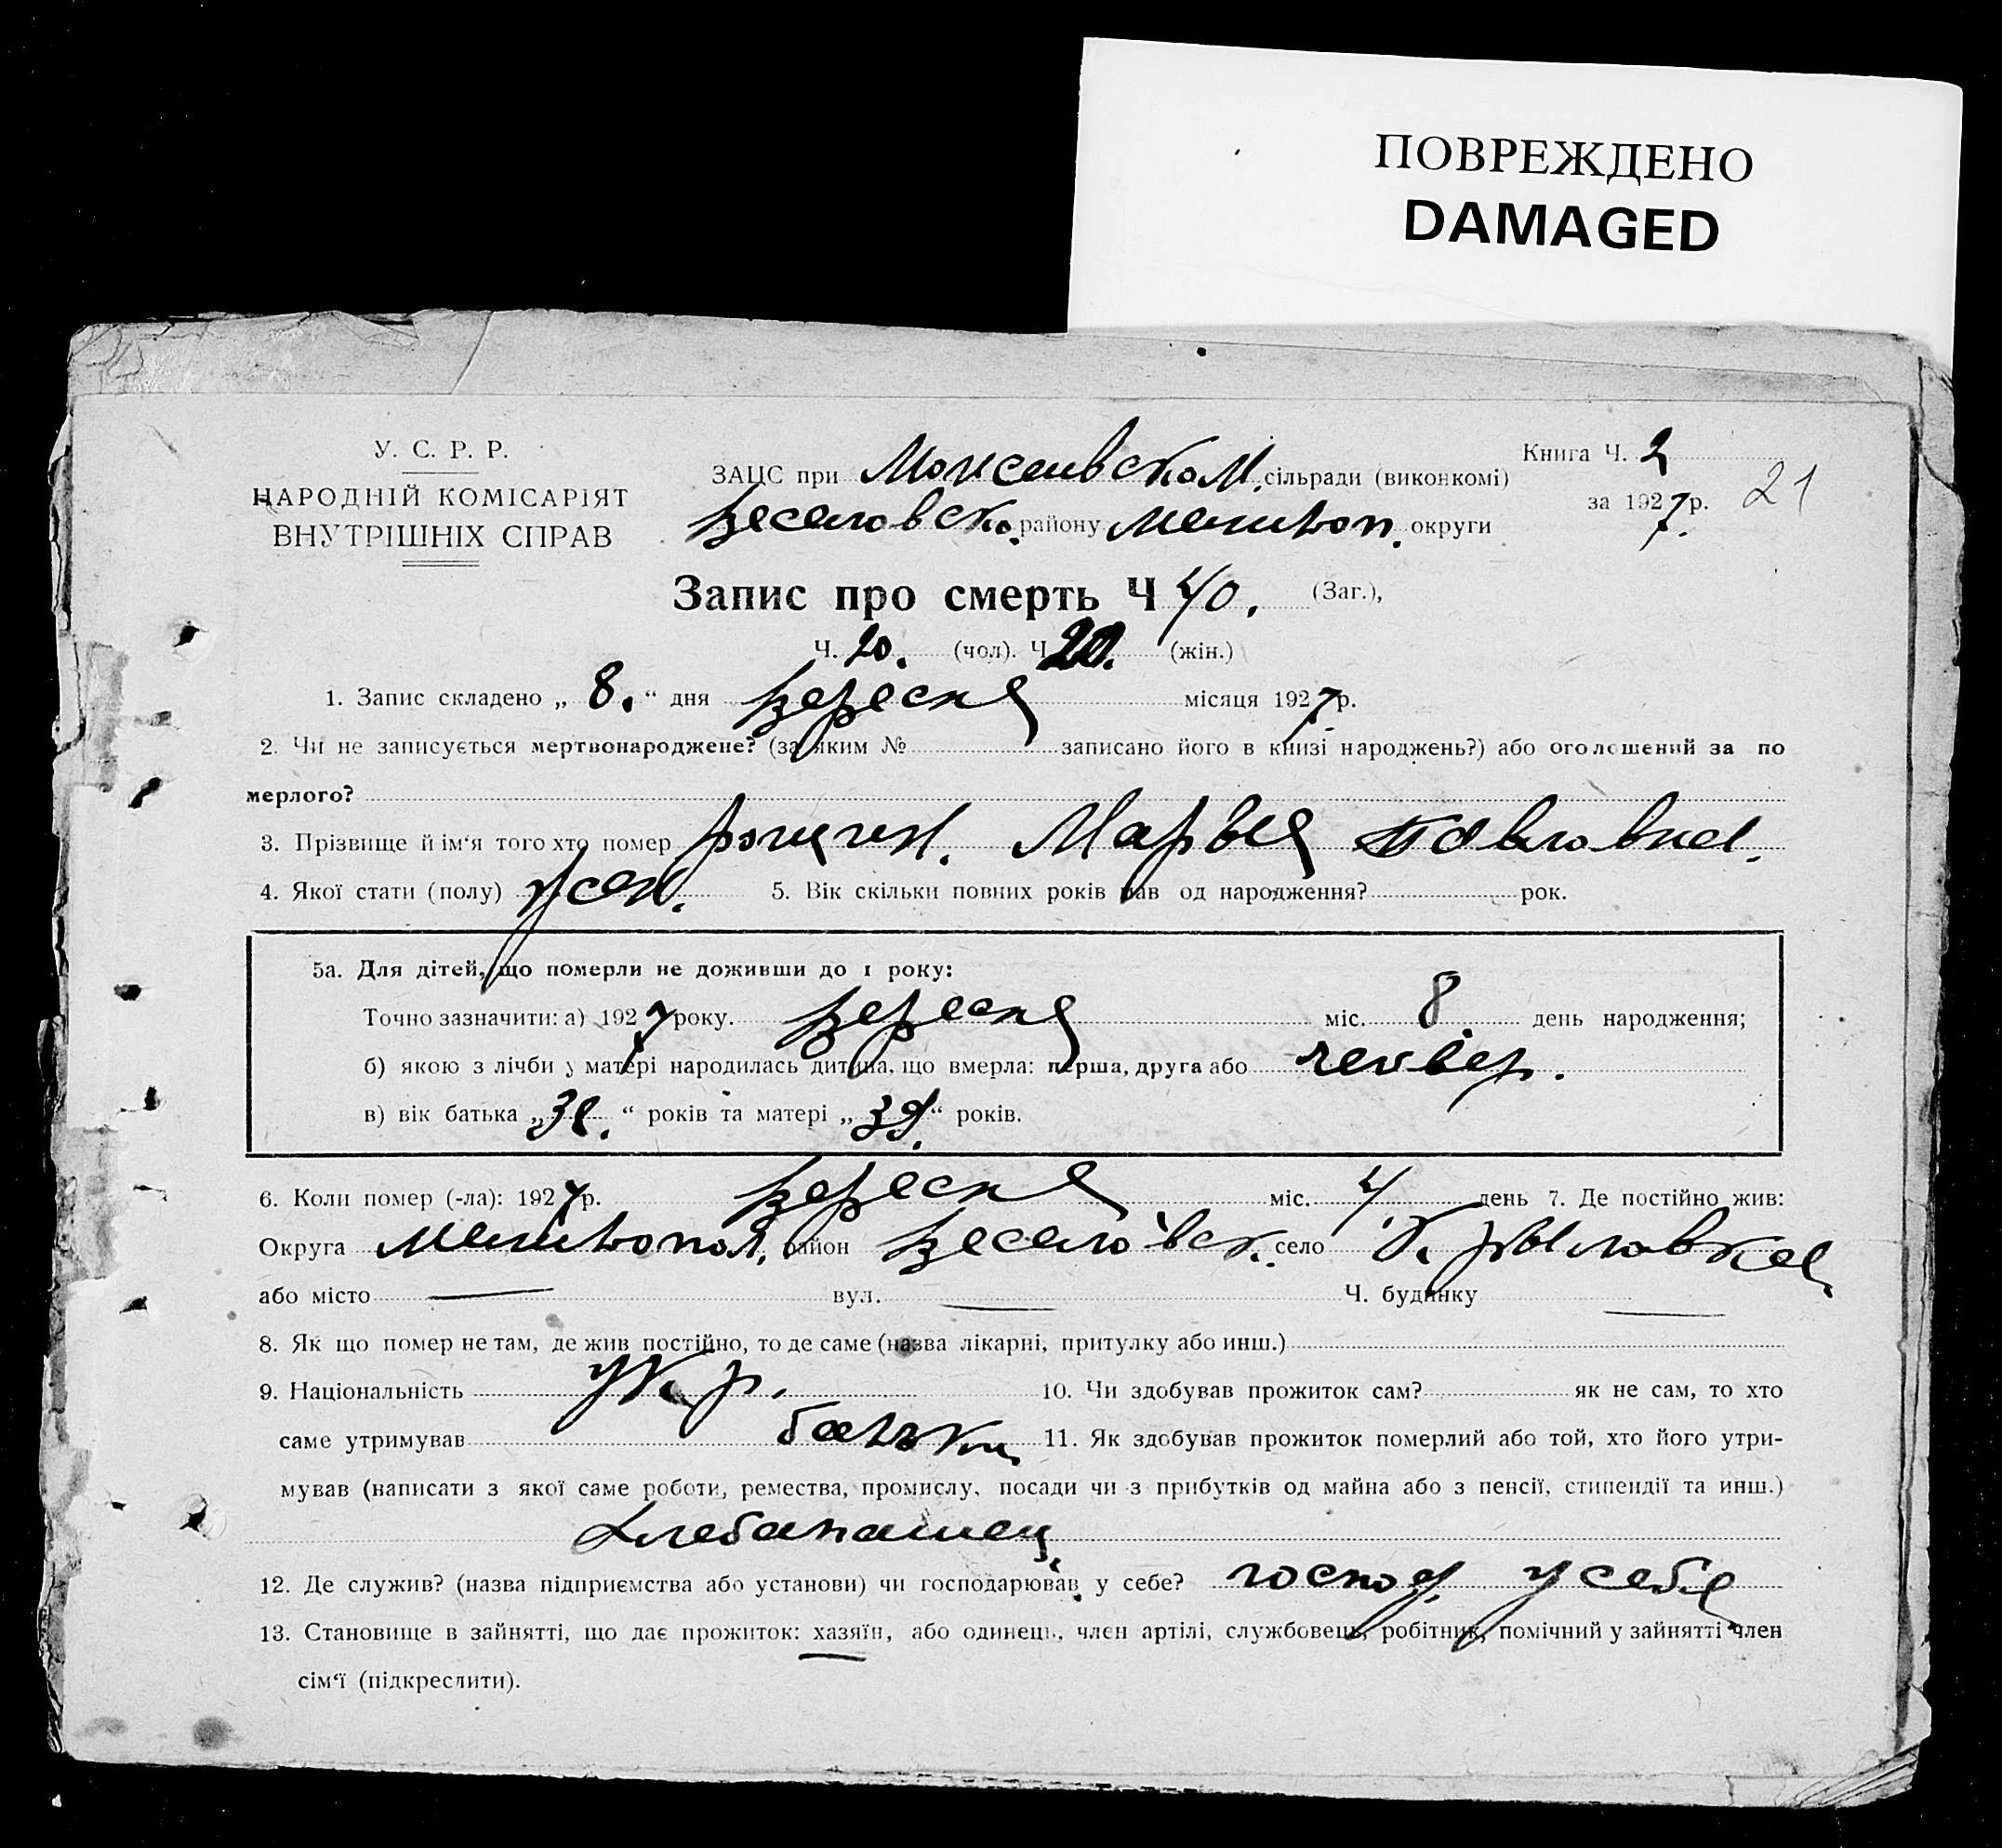 ПОВРЕЖДЕНО
DAMAGED
У. С. Р. Р.
НАРОДНІЙ КОМІСАРІЯТ
ВНУТРІШНІХ СПРАВ
ЗАЦС при сільради (виконкомі)
Веселовско. району Мелитоп. округи
Книга Ч. 2
за 1927 р.
21
Запис про смерть Ч 40. (Заг.),
Ч. 20. (чол). Ч 20. (жін.)
1. Запис складено „ 8. “ дня вересня місяця 1927 р.
2. Чи не записується мертвонароджене? (за яким № записано його в книзі народжень?) або оголошений за по
мерлого?
3. Прізвище й ім‘я того хто помер Марья Павловна.
4. Якої стати (полу) жен. 5. Вік скільки повних років мав од народження? рок.
5а. Для дітей, що померли не доживши до 1 року:
Точно зазначити: а) 1927 року. вересня міс. 8 день народження;
б) якою з лічби у матері народилась дитина, що вмерла: перша, друга або четвер.
в) вік батька „ “ років та матері „ “ років.
6. Коли помер (-ла): 1927 р. вересня міс. 4 день 7. Де постійно жив:
Округа Мелитопол. район Веселовск. село
або місто — вул. — Ч. будинку —
8. Як що помер не там, де жив постійно, то де саме (назва лікарні, притулку або инш.)
9. Національність укр. 10. Чи здобував прожиток сам? як не сам, то хто
саме утримував батьки 11. Як здобував прожиток померлий або той, хто його утри-
мував (написати з якої саме роботи, ремества, промислу, посади чи з прибутків од майна або з пенсії, стипендії та инш.)
Хлебапашец
12. Де служив? (назва підприємства або установи) чи господарював у себе? господ. у себе
13. Становище в зайнятті, що дає прожиток: хазяїн, або одинець, член артілі, службовець, робітник, помічний у зайнятті член
сім‘ї (підкреслити).